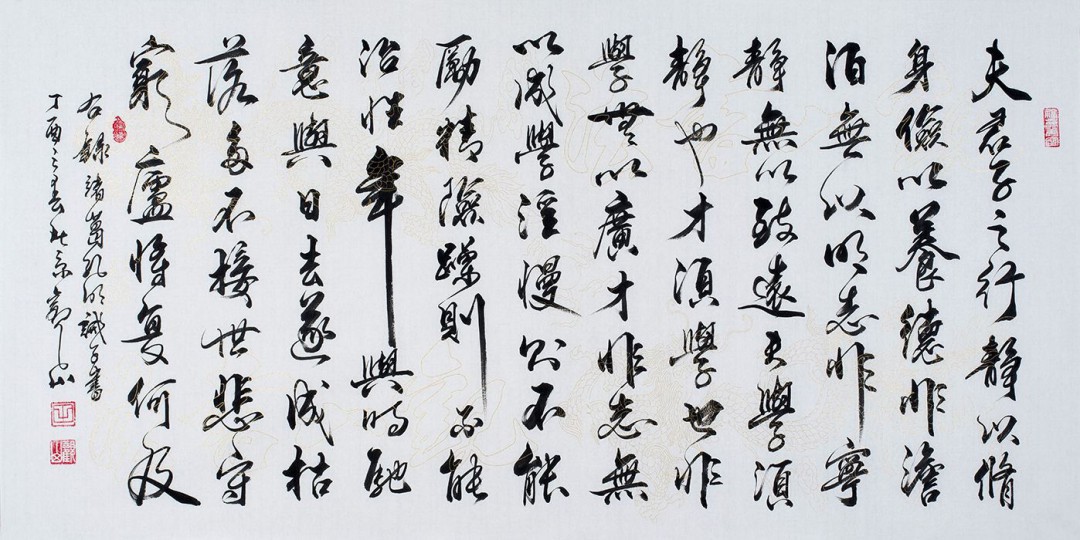 夫君子之行靜以脩
身儉以養德非澹
泊無以明志非寧
靜無以致遠夫學須
靜也才須學也非
學無以廣才非志無
以成學淫慢則不能
勵精險躁則不能
治性年與時馳
意與日去遂成枯
落多不接世悲守
窮廬將復何及
右錄諸葛孔明誡子書
丁酉之春北京